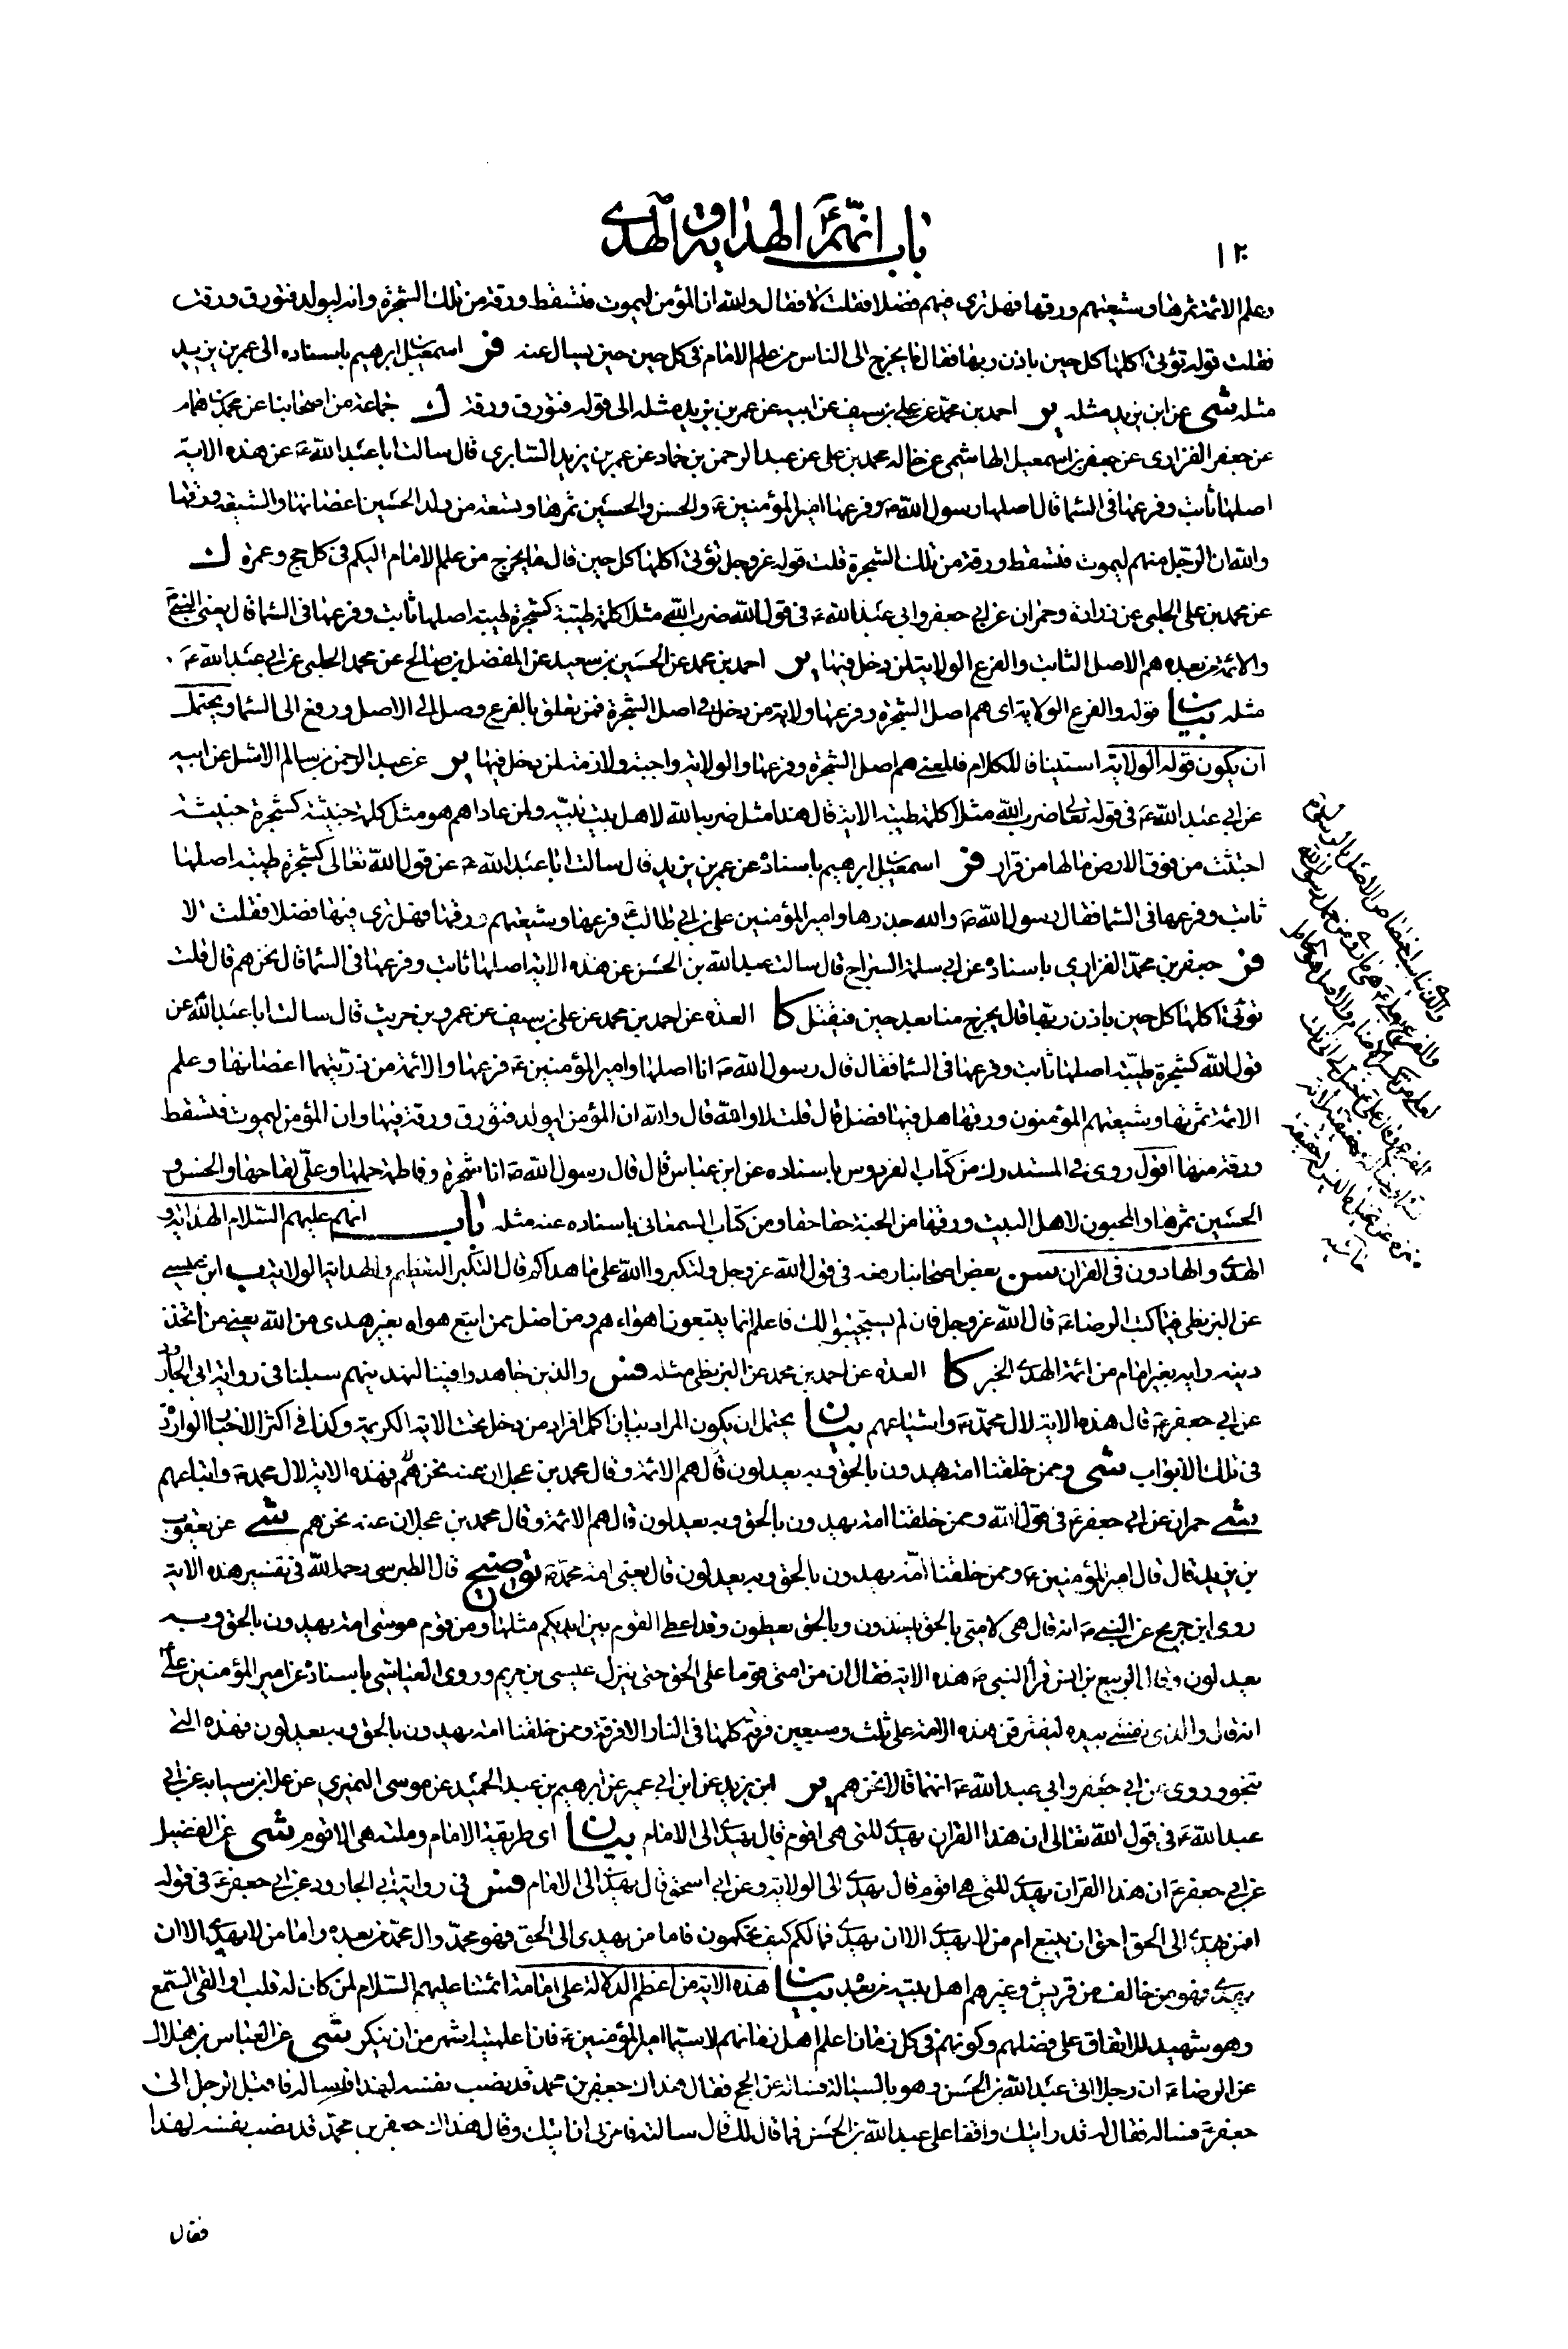 باب انهم الهداية والهدى
١٢٠
وعلم الائمة ثمرها وشيعتهم ورقها فهل ترى فيهم فضلا فقلت لا فقال والله ان المؤمن ليموت فتسقط ورقة من تلك الشجرة وانه ليولد فتورق ورقة
فقلت قوله تؤتى اكلها كل حين باذن ربها فقال ما يخرج الى الناس من علم الامام فى كل حين حين يسال عنه فر اسمعيل بن ابرهيم باسناده الى عمر بن يزيد
مثله شى عن ابن يزيد مثله ير احمد بن محمد عن على بن سيف عن ابيه عن عمر بن يزيد مثله الى قوله فتورق ورقة ك جماعة من اصحابنا عن محمد بن همام
عن جعفر الفزارى عن جعفر بن اسمعيل الهاشمى عن خاله محمد بن على عن عبد الرحمن بن حماد عن عمر بن يزيد السابرى قال سالت ابا عبد الله ع عن هذه الاية
اصلها ثابت وفرعها فى السما قال اصلها رسول الله ص وفرعها امير المؤمنين ع والحسن والحسين ثمرها وتسعة من ولد الحسين اغصانها والشيعة ورقها
والله ان الرجل منهم ليموت فتسقط ورقة من تلك الشجرة قلت قوله عز وجل تؤتى اكلها كل حين قال ما يخرج من علم الامام اليكم فى كل حج وعمرة ك
عن محمد بن على الحلبى عن زرارة وحمران عن ابى جعفر وابى عبد الله ع فى قول الله ضرب الله مثلا كلمة طيبة كشجرة طيبة اصلها ثابت وفرعها فى السما قال يعنى النبى ص
والائمة من بعده هم الاصل الثابت والفرع الولاية لمن دخل فيها ير احمد بن محمد عن الحسين بن سعيد عن المفضل بن صالح عن محمد الحلبى عن ابى عبد الله ع
مثله بيان قوله والفرع الولاية اى هم اصل الشجرة وفرعها ولاية من دخل فى اصل الشجرة فمن تعلق بالفرع وصل الى الاصل ورفع الى السما ويحتمل
ان يكون قوله الولاية استينافا للكلام فالمعنى هم اصل الشجرة وفرعها والولاية واجبة ولازمة لمن دخل فيها ير عن عبد الرحمن بن سالم الاشل عن ابيه
عن ابى عبد الله ع فى قوله تعالى ضرب الله مثلا كلمة طيبة الاية قال هذا مثل ضربه الله لاهل بيت نبيه ولمن عاداهم هو مثل كلمة خبيثة كشجرة خبيثة
اجتثت من فوق الارض ما لها من قرار فر اسمعيل بن ابرهيم باسناده عن عمر بن يزيد قال سالت ابا عبد الله ع عن قول الله تعالى كشجرة طيبة اصلها
ثابت وفرعها فى السما فقال رسول الله ص والله جذرها وامير المؤمنين على بن ابى طالب ع فرعها وشيعتهم ورقها فهل ترى فيها فضلا فقلت لا
فر جعفر بن محمد الفزارى باسناده عن ابى سلمة السراج قال سالت عبد الله بن الحسن عن هذه الاية اصلها ثابت وفرعها فى السما قال نحن هم قال قلت
تؤتى اكلها كل حين باذن ربها قال يخرج منا بعد حين فيقتل كا العدة عن احمد بن محمد عن على بن سيف عن عمرو بن حريث قال سالت ابا عبد الله ع عن
قول الله كشجرة طيبة اصلها ثابت وفرعها فى السما فقال قال رسول الله ص انا اصلها وامير المؤمنين ع فرعها والائمة من ذريتهما اغصانها وعلم
الائمة ثمرتها وشيعتهم المؤمنون ورقها هل فيها فضل قال قلت لا والله قال والله ان المؤمن ليولد فتورق ورقة فيها وان المؤمن ليموت فتسقط
ورقة منها اقول روى فى المستدرك من كتاب الفردوس باسناده عن ابن عباس قال قال رسول الله ص انا شجرة وفاطمة حملها وعلى لقاحها والحسن و
الحسين ثمرها والمحبون لاهل البيت ورقها من الجنة حقا حقا ومن كتاب السمعانى باسناده عنه مثله باب انهم عليهم السلام الهداية و
الهدى والهادون فى القران سن بعض اصحابنا رفعه فى قول الله عز وجل ولتكبروا الله على ما هداكم قال التكبير التعظيم والهداية الولاية ب ابن عيسى
عن البزنطى فيما كتب الرضا ع قال الله عز وجل فان لم يستجيبوا لك فاعلم انما يتبعون اهواءهم ومن اضل ممن اتبع هواه بغير هدى من الله يعنى من اتخذ
دينه رايه بغير امام من ائمة الهدى الخبر كا العدة عن احمد بن محمد عن البزنطى مثله فس والذين جاهدوا فينا لنهدينهم سبلنا فى رواية ابى الجارود
عن ابى جعفر ع قال هذه الاية لال محمد ص واشياعهم بيان يحتمل ان يكون المراد بيان اكمل افراد من دخل تحت الاية الكريمة وكذا فى اكثر الاخبار الواردة
فى تلك الابواب شى وممن خلقنا امة يهدون بالحق وبه يعدلون قال هم الائمة وقال محمد بن عجلان عنه نحن هم فهذه الاية لال محمد ص واتباعهم
شى حمران عن ابى جعفر ع فى قول الله وممن خلقنا امة يهدون بالحق وبه يعدلون قال هم الائمة وقال محمد بن عجلان عنه نحن هم شى عن يعقوب
بن يزيد قال قال امير المؤمنين ع وممن خلقنا امة يهدون بالحق وبه يعدلون قال يعنى امة محمد ص توضيح قال الطبرسى رحمه الله فى تفسير هذه الاية
روى ابن جريج عن النبى ص انه قال هى لامتى بالحق ياخذون وبالحق يعطون وقد اعطى القوم بين ايديكم مثلها ومن قوم موسى امة يهدون بالحق وبه
يعدلون وقال الربيع بن انس قرأ النبى ص هذه الاية فقال ان من امتى قوما على الحق حتى ينزل عيسى بن مريم وروى العياشى باسناده عن امير المؤمنين على ع
انه قال والذى نفسى بيده ليفترقن هذه الامة على ثلث وسبعين فرقة كلها فى النار الا فرقة وممن خلقنا امة يهدون بالحق وبه يعدلون فهذه التى
تنجو وروى عن ابى جعفر وابى عبد الله ع انهما قالا نحن هم ير ابن يزيد عن ابن ابى عمير عن ابرهيم بن عبد الحميد عن موسى النميرى عن علا بن سيابة عن ابى
عبد الله ع فى قول الله تعالى ان هذا القران يهدى للتى هى اقوم قال يهدى الى الامام بيان اى طريقة الامام وملته هى الاقوم شى عن الفضيل
عن ابى جعفر ع ان هذا القران يهدى للتى هى اقوم قال يهدى الى الولاية وعن ابى اسحق قال يهدى الى الامام فس فى رواية ابى الجارود عن ابى جعفر ع فى قوله
افمن يهدى الى الحق احق ان يتبع ام من لا يهدى الا ان يهدى فما لكم كيف تحكمون فاما من يهدى الى الحق فهو محمد وال محمد من بعده واما من لا يهدى الا ان
يهدى فهو من خالف من قريش وغيرهم اهل بيته من بعده بيان هذه الاية من اعظم الدلالة على امامة ائمتنا عليهم السلام لمن كان له قلب او القى السمع
وهو شهيد للاتفاق على فضلهم وكونهم فى كل زمان اعلم اهل زمانهم لا سيما امير المؤمنين ع فان اعلميته اشهر من ان ينكر شى عن العباس بن هلال
عن الرضا ع ان رجلا اتى عبد الله بن الحسن وهو بالسبالة فساله عن الحج فقال هذاك جعفر بن محمد قد نصب نفسه لهذا فاساله فاقبل الرجل الى
جعفر ع فساله فقال له قد رايتك واقفا على عبد الله بن الحسن فما قال لك قال سالته فامرنى ان اتيك وقال هذاك جعفر بن محمد قد نصب نفسه لهذا
فقال